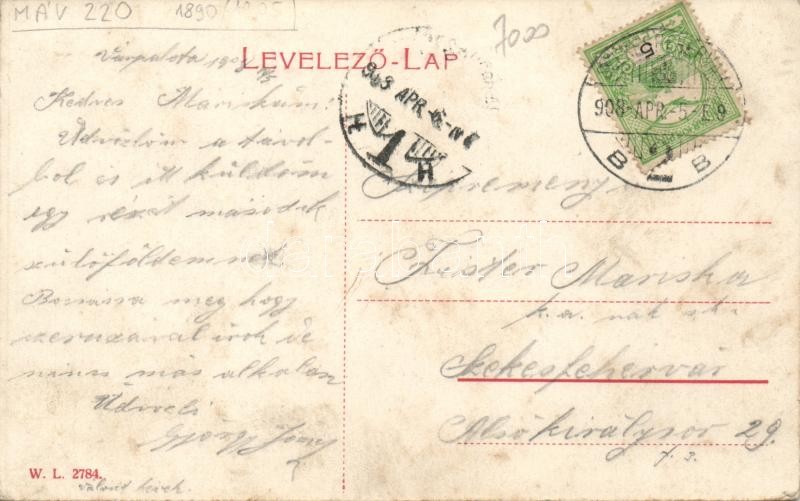 MÁV 220 1890
7000
LEVELEZŐ-LAP
Várpalota
Kedves Mariskám!
Üdvözlöm a távol-
ból és itt küldöm
egy részét második
szülőföldemnek
Bocsássa meg hogy
ceruzával írok de
nincs más alkalom
Üdvözli
W. L. 2784.
választ kérek.
908 APR.
1
H
908 APR. 5. E 9
B 2 B
Zeister Mariska
Székesfehérvár
Alsókirálysor 29.